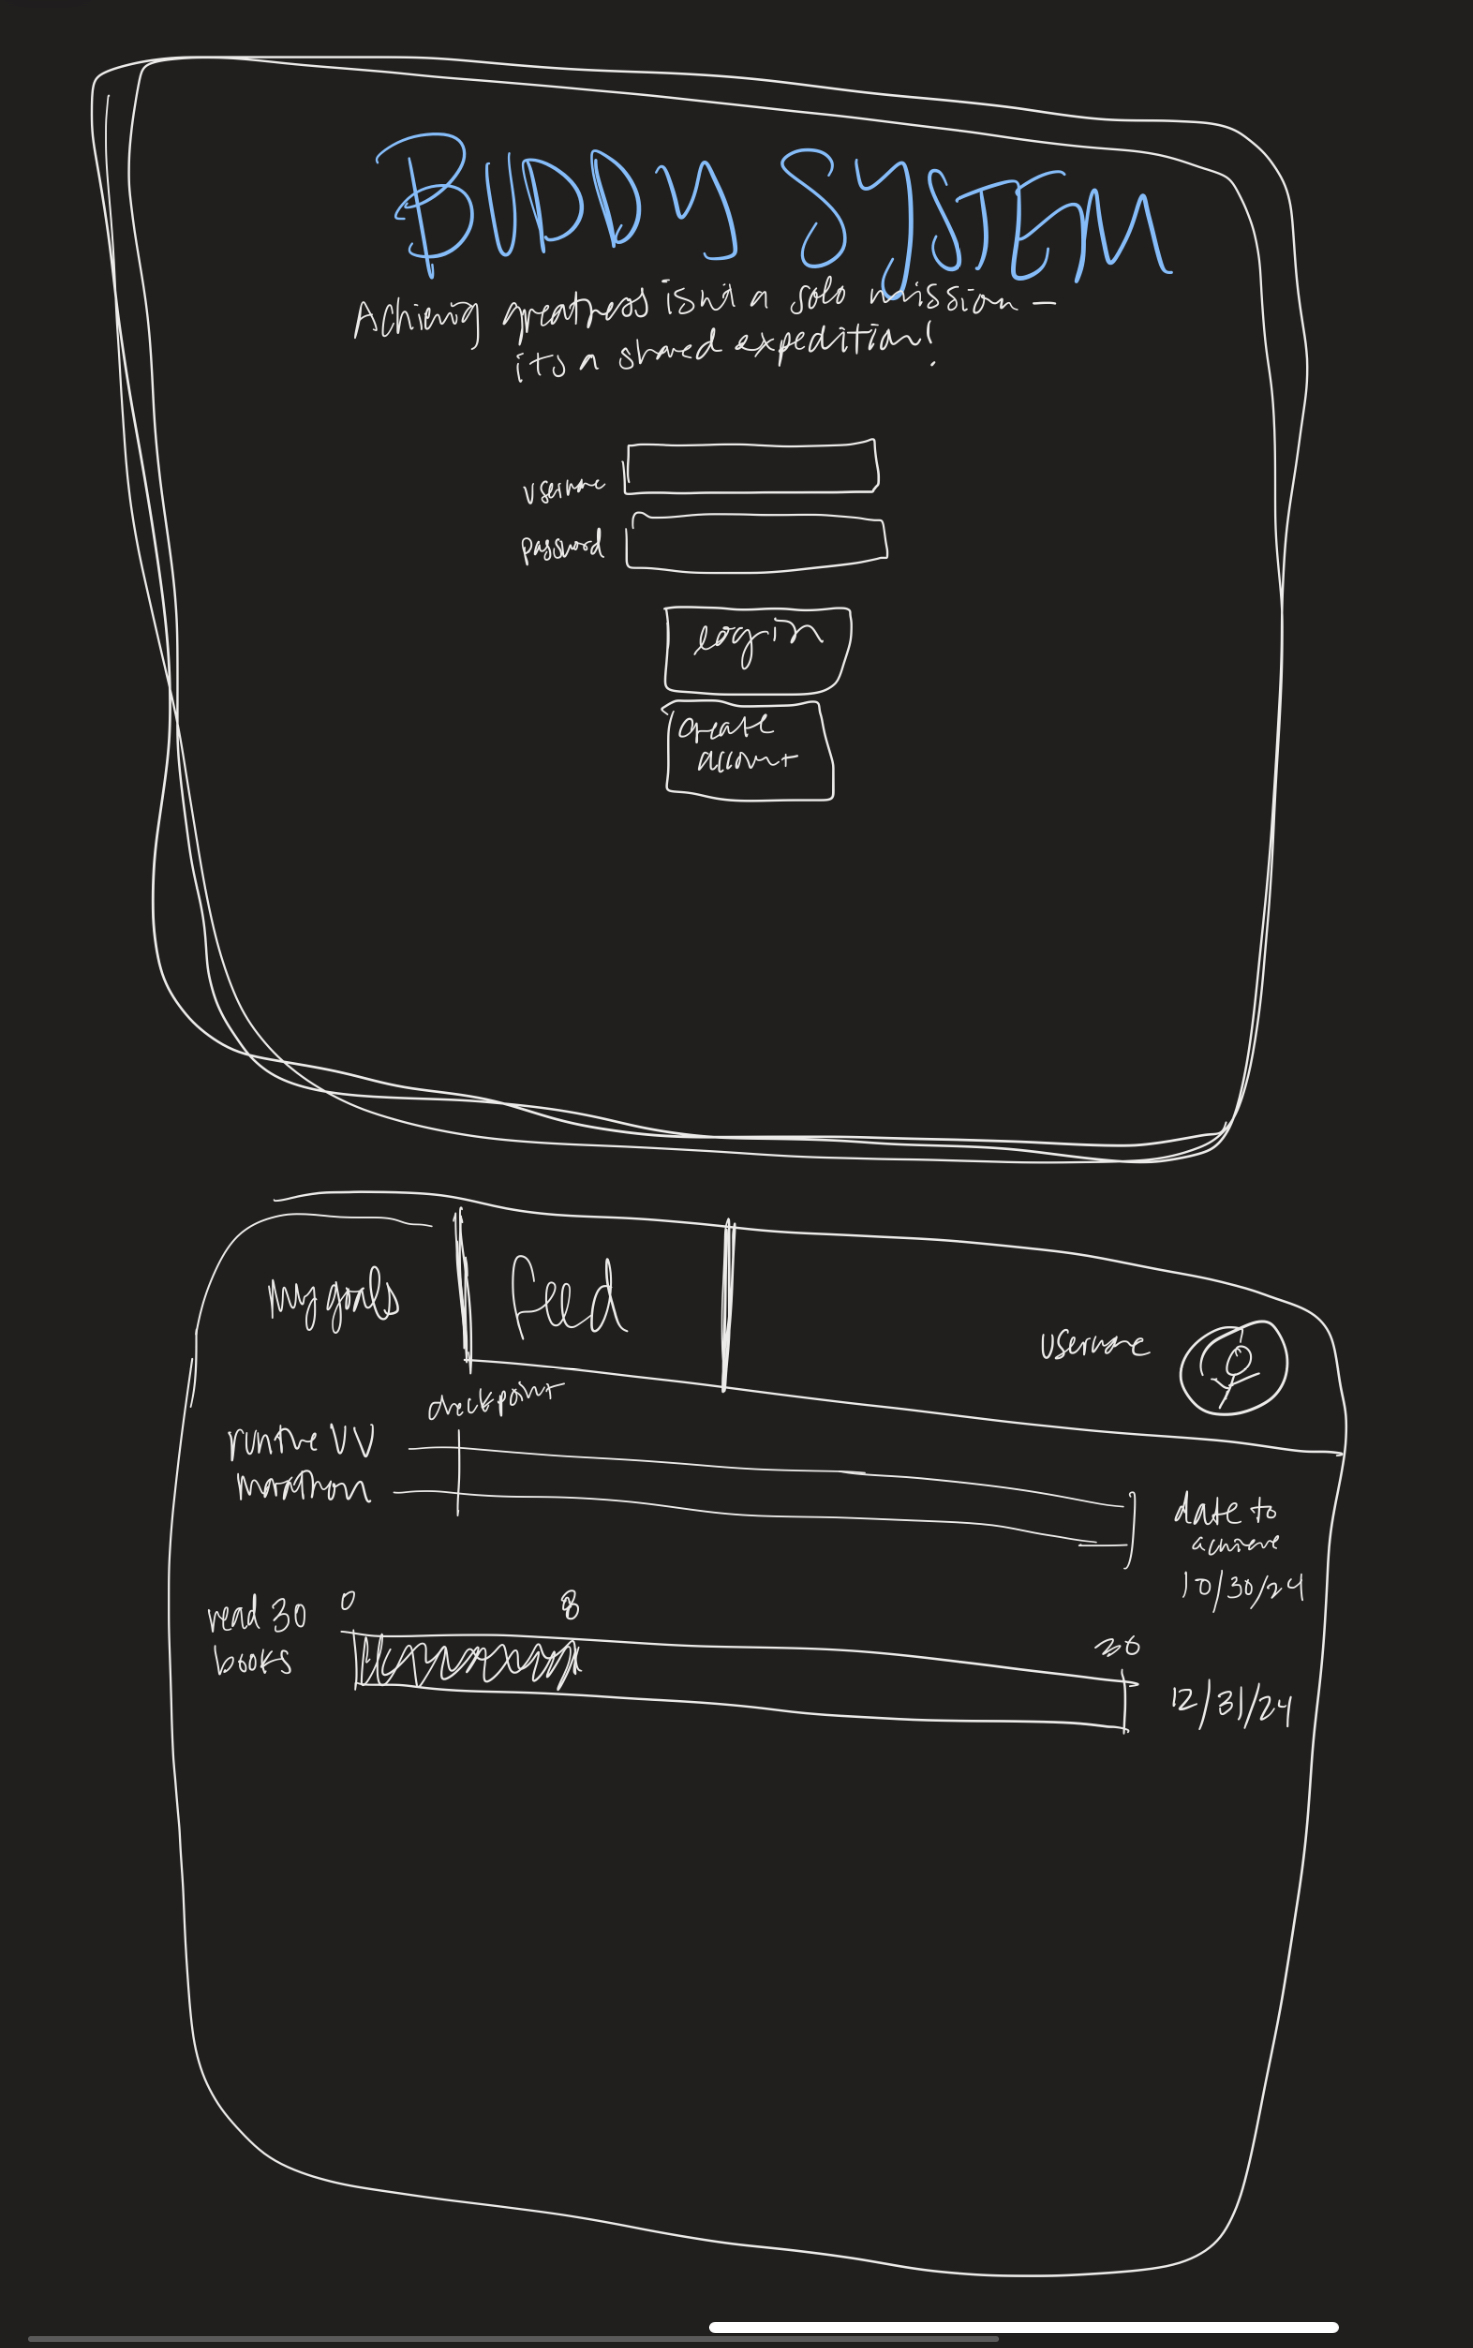 BUDDY SYSTEM
Achieving greatness isn't a solo mission –
its a shared expedition!
username
password
login
create
account
my goals
Feed
username
checkpoint
run the VV
marathon
date to
achieve
10/30/24
read 30
books
0
8
30
12/31/24